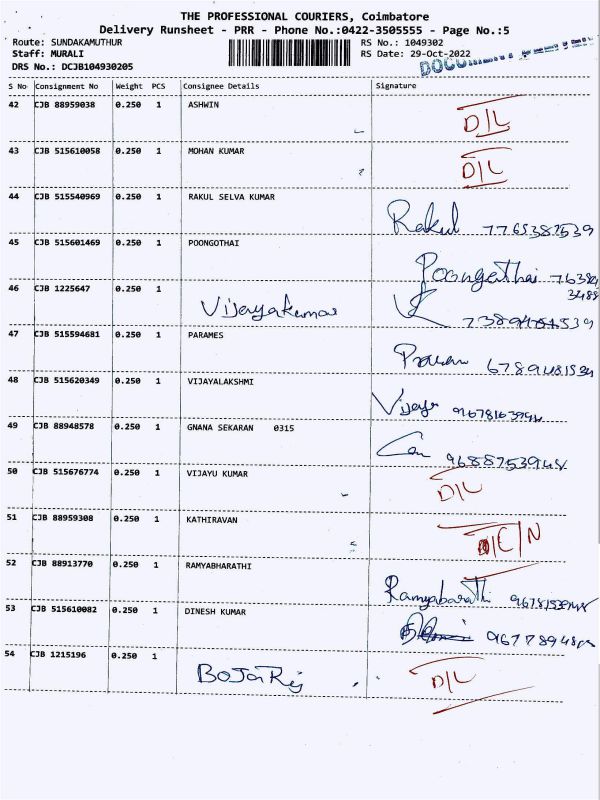 THE PROFESSIONAL COURIERS, Coimbatore
Delivery Runsheet - PRR - Phone No.:0422-3505555 - Page No.:5
Route: SUNDAKAMUTHUR RS No.: 1049302
Staff: MURALI RS Date: 29-Oct-2022
DRS No.: DCJB104930205
S No Consignment No Weight PCS Consignee Details Signature
42 CJB 88959038 0.250 1 ASHWIN D/L
43 CJB 515610058 0.250 1 MOHAN KUMAR D/L
44 CJB 515540969 0.250 1 RAKUL SELVA KUMAR Rakul 7765387539
45 CJB 515601469 0.250 1 POONGOTHAI Poongothai
46 CJB 1225647 0.250 1 Vijayakumar
47 CJB 515594681 0.250 1 PARAMES
48 CJB 515620349 0.250 1 VIJAYALAKSHMI Vijaya
49 CJB 88948578 0.250 1 GNANA SEKARAN 0315
50 CJB 515676774 0.250 1 VIJAYU KUMAR D/L
51 CJB 88959308 0.250 1 KATHIRAVAN
52 CJB 88913770 0.250 1 RAMYABHARATHI Ramyabarathi
53 CJB 515610082 0.250 1 DINESH KUMAR
54 CJB 1215196 0.250 1 D/L